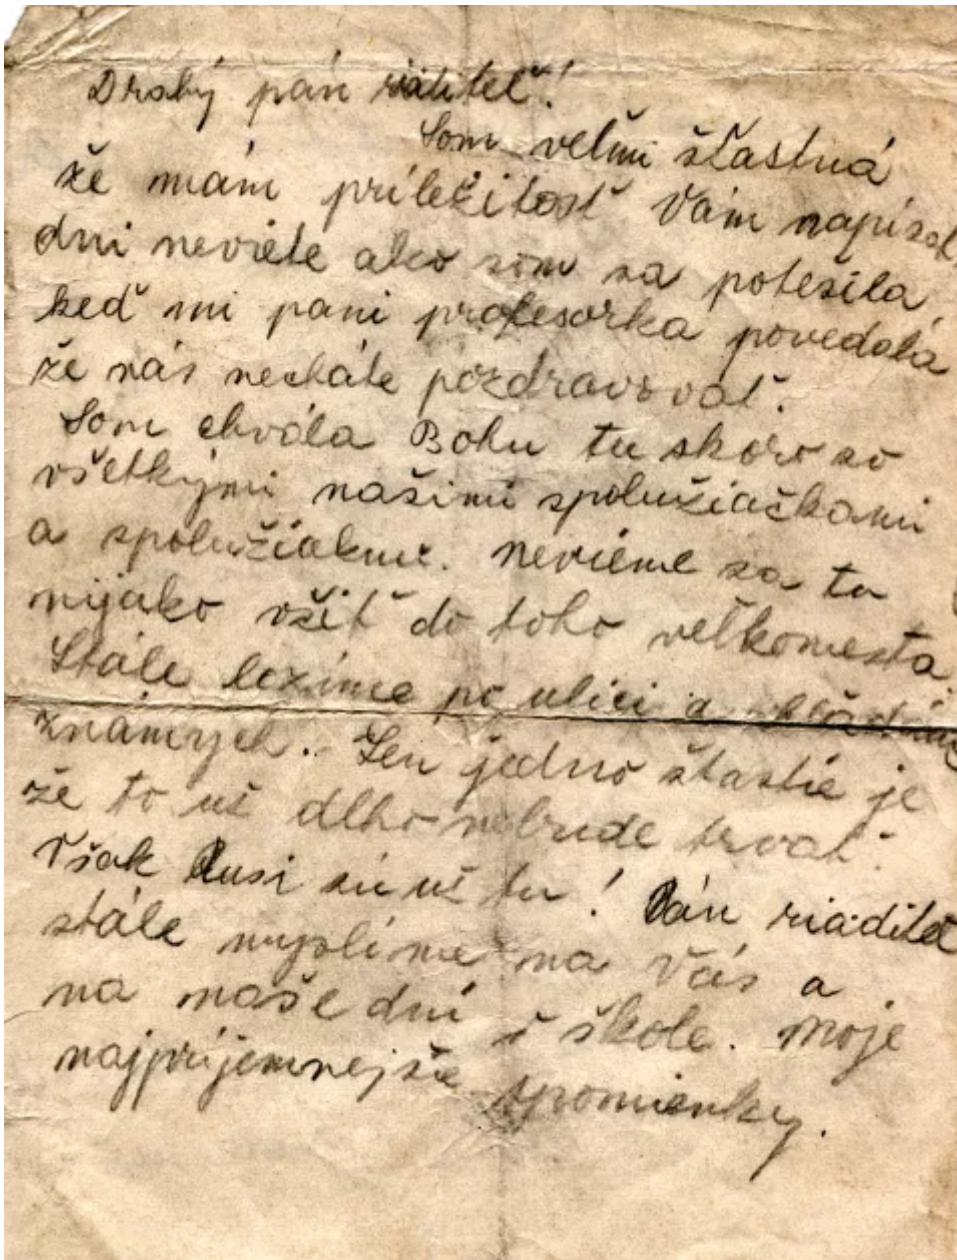 Drahý pán riaditeľ!
Som veľmi šťastná
že mám príležitosť Vám napísať,
ani neviete ako som sa potešila,
keď mi pani profesorka povedala
že nás necháte pozdravovať.
Som chvála Bohu tu skoro so
všetkými našimi spolužiačkami
a spolužiakmi. Nevieme sa tu
nijako vžiť do toho veľkomesta.
Stále lezíme po ulici a hľadáme
známych. Len jedno šťastie je
že to už dlho nebude trvať.
Však Rusi sú už tu! Pán riaditeľ
stále myslíme na Vás a
na naše dni v škole. Moje
najpríjemnejšie spomienky.